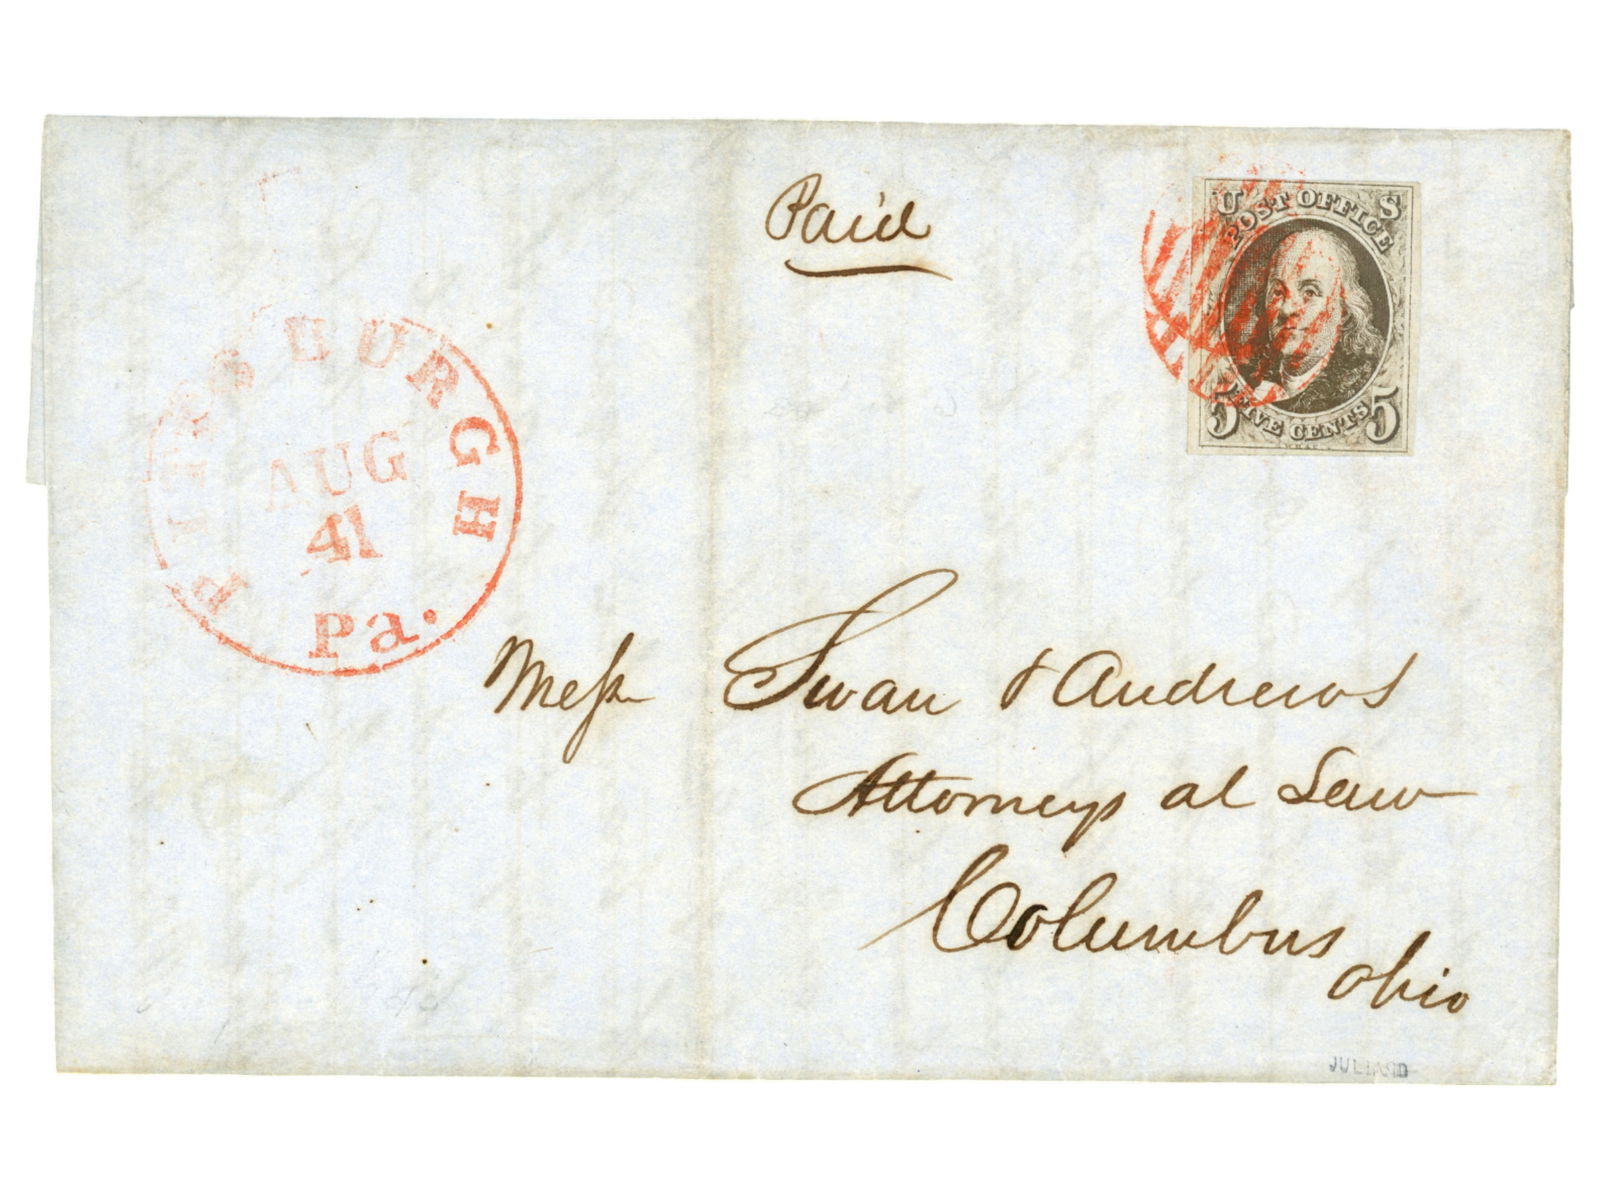 Paid
U S
POST OFFICE
FIVE CENTS
5 5
PITTSBURGH
AUG
41
Pa.
Messrs Swan & Andrews
Attorneys at Law
Columbus
Ohio